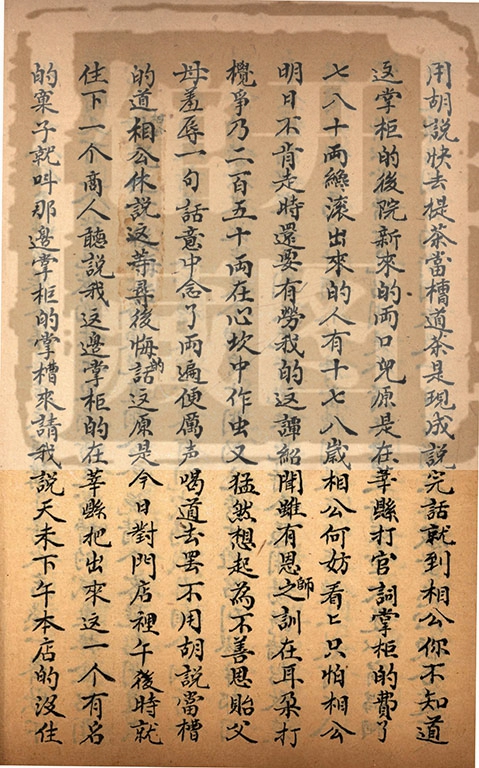 用胡說快去提茶當槽道茶是現成說完話就到相公你不知道
這掌柜的後院新來的両口兒原是在莘縣打官詞掌柜的費了
七八十両纔滚出來的人有十七八歲相公何妨看匕只怕相公
明日不肯走時還要有勞我的这譚紹聞雖有恩師之訓在耳朶打
攪爭乃二百五十両在心坎中作虫又猛然想起為不善思貽父
母羞辱一句話意中念了両遍便厲声喝道去罢不用胡說當槽
的道相公休說这等尋後悔的話这原是今日對門店裡午後時就
住下一个商人聽說我这邊掌柜的在莘縣把出來这一个有名
的窠子就叫那邊掌柜的掌槽來請我說天未下午本店的没住